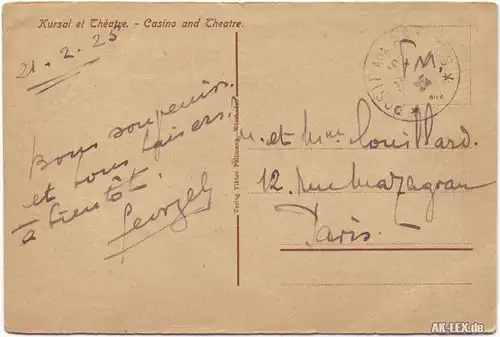 Kursal et Théatre. - Casino and Theatre.
21.2.25
Bons souvenirs
et bons baisers.
à bientôt.
Georges
Verlag Viktor Pillmann, Wiesbaden
POSTE AUX ARMÉES
F.M.
M. et Mme Couillard.
12, rue Mazagran
Paris.
AK-LEX.de